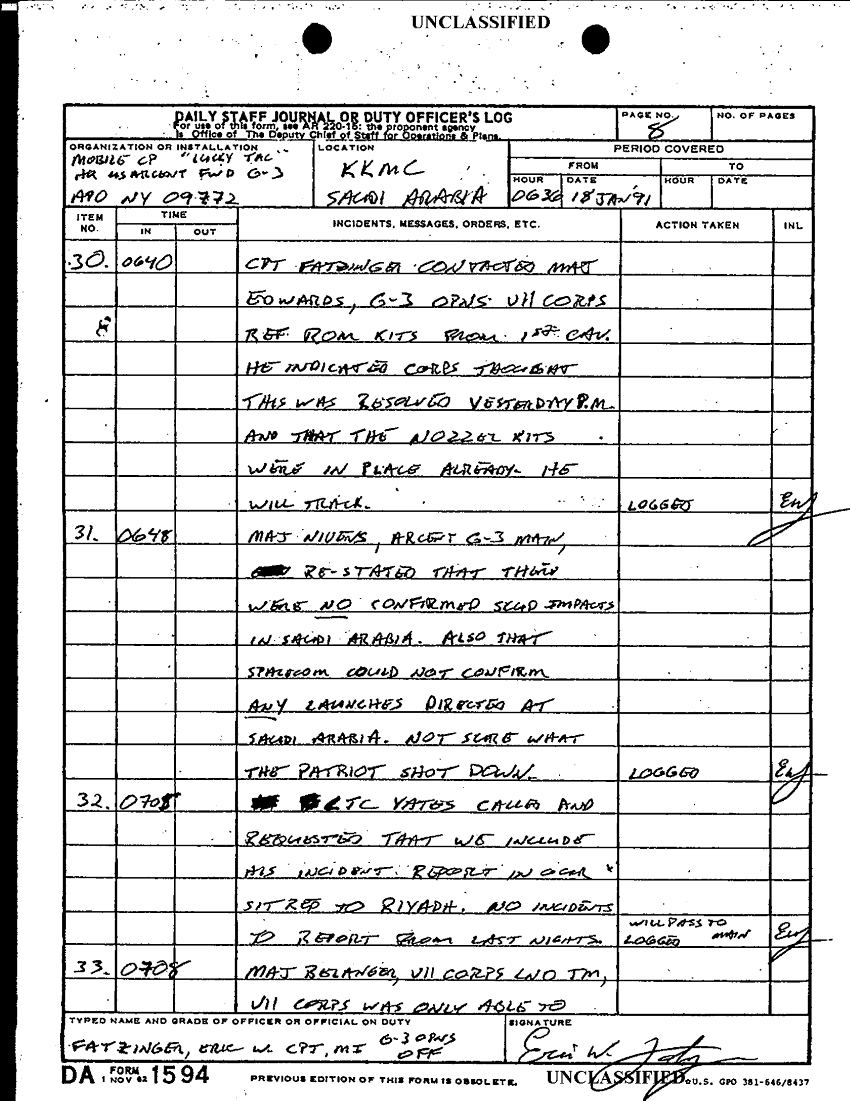 UNCLASSIFIED
DAILY STAFF JOURNAL OR DUTY OFFICER'S LOG
For use of this form, see AR 220-15; the proponent agency
is Office of The Deputy Chief of Staff for Operations & Plans.
PAGE NO.
8
NO. OF PAGES
ORGANIZATION OR INSTALLATION
MOBILE CP "LUCKY TAC"
HQ USARCENT FWD G-3
APO NY 09772
LOCATION
KKMC
SAUDI ARABIA
PERIOD COVERED
FROM
TO
HOUR
DATE
HOUR
DATE
0636
18 JAN 91
ITEM NO.
TIME
IN
OUT
INCIDENTS, MESSAGES, ORDERS, ETC.
ACTION TAKEN
INL
30. 0640 CPT FATZINGER CONTACTED MAJ
EDWARDS, G-3 OPNS VII CORPS
REF ROM KITS FROM 1ST CAV.
HE INDICATED CORPS THOUGHT
THIS WAS RESOLVED YESTERDAY P.M.
AND THAT THE NOZZEL KITS
WERE IN PLACE ALREADY. HE
WILL TRACK. LOGGED EWF
31. 0648 MAJ NIVENS, ARCENT G-3 MAIN,
RE-STATED THAT THEIR
WERE NO CONFIRMED SCUD IMPACTS
IN SAUDI ARABIA. ALSO THAT
SPACECOM COULD NOT CONFIRM
ANY LAUNCHES DIRECTED AT
SAUDI ARABIA. NOT SURE WHAT
THE PATRIOT SHOT DOWN. LOGGED EWF
32. 0705 LTC YATES CALLED AND
REQUESTED THAT WE INCLUDE
HIS INCIDENT REPORT IN OUR
SITREP TO RIYADH. NO INCIDENTS
TO REPORT FROM LAST NIGHTS. WILL PASS TO MAIN
LOGGED EWF
33. 0708 MAJ BELANGER, VII CORPS LNO TM,
VII CORPS WAS ONLY ABLE TO
TYPED NAME AND GRADE OF OFFICER OR OFFICIAL ON DUTY
FATZINGER, ERIC W. CPT, MI G-3 OPNS OFF
SIGNATURE
Eric W.
DA FORM 1 NOV 62 1594
PREVIOUS EDITION OF THIS FORM IS OBSOLETE.
UNCLASSIFIED
U.S. GPO 381-646/8437